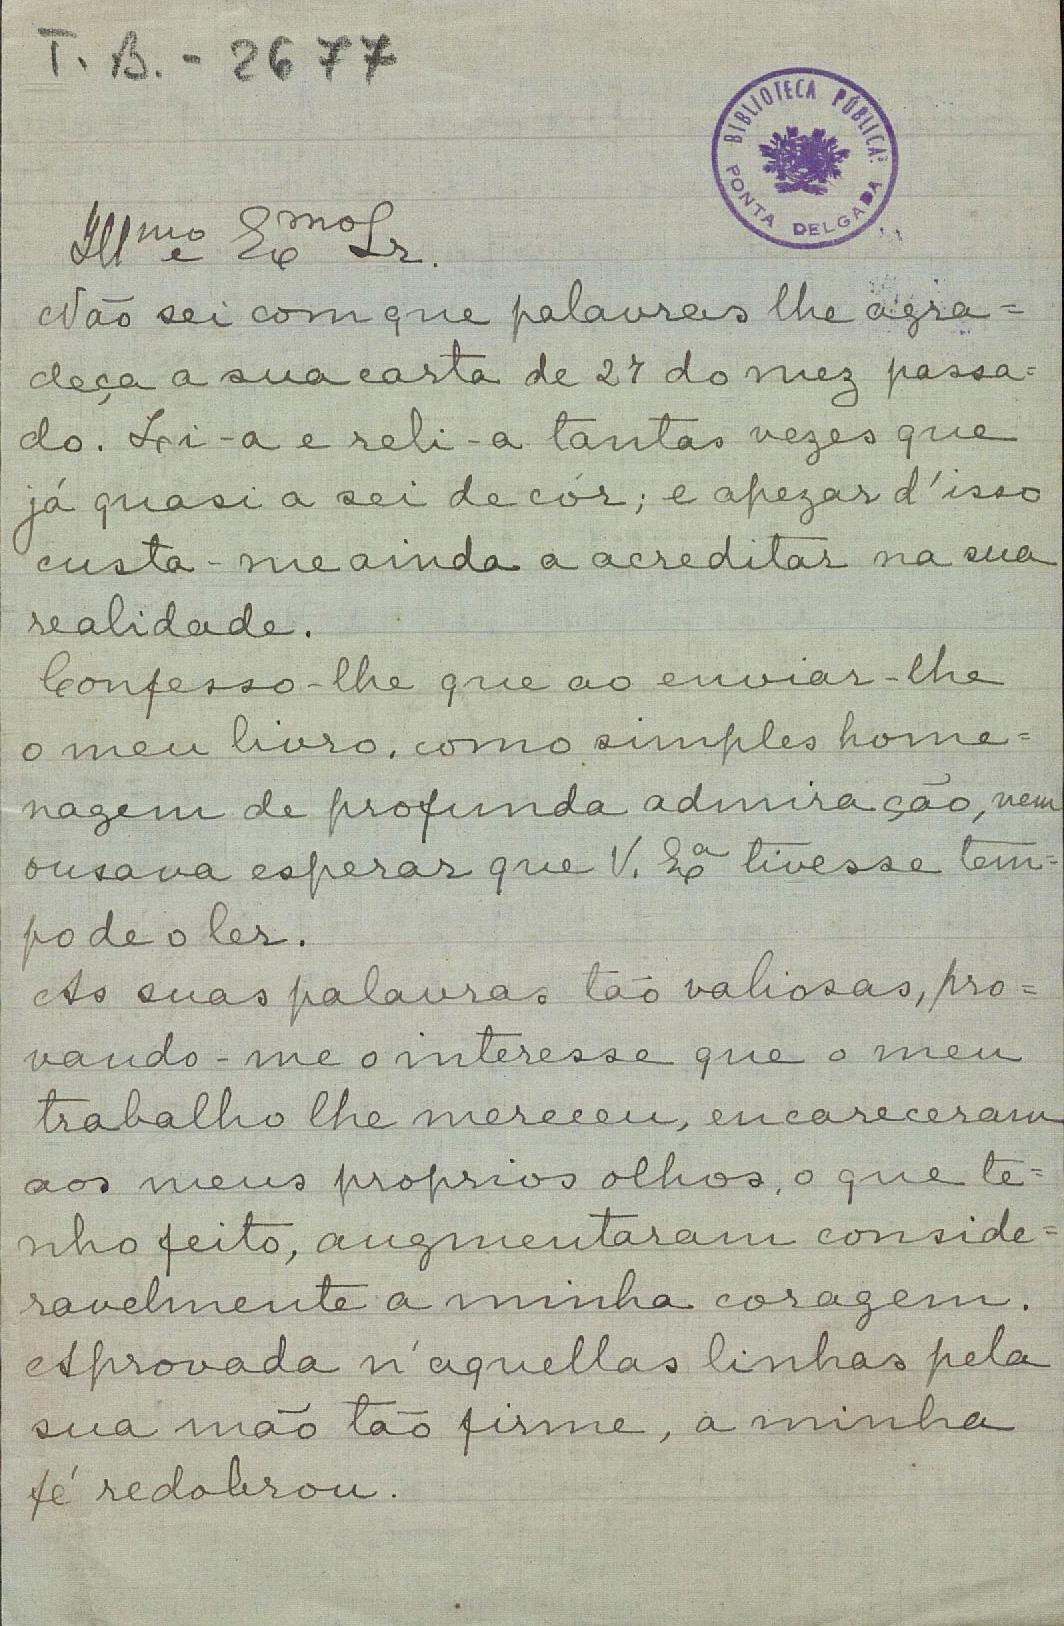 T. B. - 2677
BIBLIOTECA PÚBLICA
PONTA DELGADA
Illmo e Exmo Sr.
Não sei com que palavras lhe agra=
deça a sua carta de 27 do mez passa=
do. Li-a e reli-a tantas vezes que
já quasi a sei de cór; e apezar d'isso
custa-me ainda a acreditar na sua
realidade.
Confesso-lhe que ao enviar-lhe
o meu livro, como simples home=
nagem de profunda admiração, nem
ousava esperar que V. Exa tivesse tem=
po de o ler.
As suas palavras tão valiosas, pro=
vando-me o interesse que o meu
trabalho lhe mereceu, encareceram
aos meus proprios olhos, o que te=
nho feito, augmentaram conside=
ravelmente a minha coragem.
Aprovada n'aquellas linhas pela
sua mão tão firme, a minha
fé redobrou.